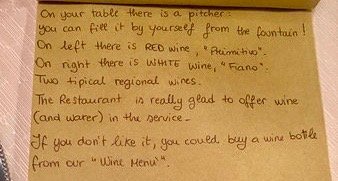 On your table there is a pitcher:
you can fill it by yourself from the fountain!
On left there is RED wine, "Primitivo".
On right there is WHITE wine, "Fiano".
Two tipical regional wines.
The Restaurant is really glad to offer wine
(and water) in the service.
If you don't like it, you could buy a wine bottle
from our "Wine Menù".